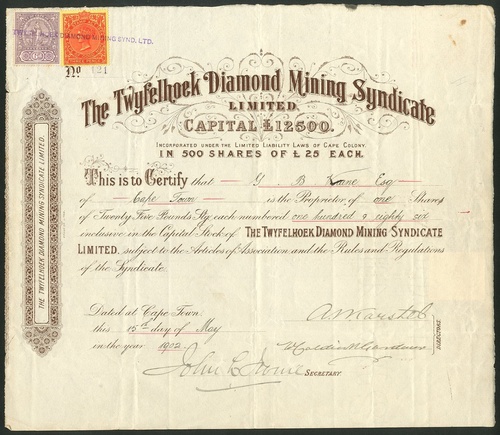 DIAMOND MINING SYND. LTD.
No 121
The Twyfelhoek Diamond Mining Syndicate
LIMITED.
CAPITAL £12500.
INCORPORATED UNDER THE LIMITED LIABILITY LAWS OF CAPE COLONY.
IN 500 SHARES OF £25 EACH.
This is to Certify that Y B Kane Esq
of Cape Town is the Proprietor of one Shares
of Twenty Five Pounds Stg each numbered one hundred & eighty six
inclusive in the Capital Stock of THE TWYFELHOEK DIAMOND MINING SYNDICATE
LIMITED, subject to the Articles of Association and the Rules and Regulations
of the Syndicate.
Dated at Cape Town
this 15th day of May
in the year 1902
DIRECTORS
John
SECRETARY
THE TWYFELHOEK DIAMOND MINING SYNDICATE LIMITED